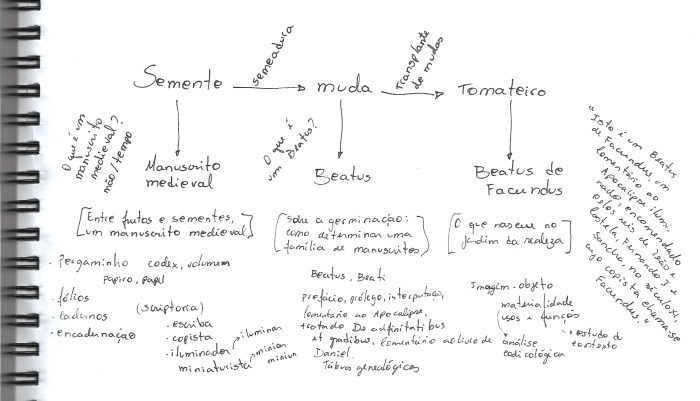 Semente
semeadura
muda
Transplante
de mudas
Tomateiro
O que é um
manuscrito
medieval?
mão/tempo
Manuscrito
medieval
O que é
um Beatus?
Beatus
Beatus de
Facundus
[Entre frutos e sementes,
um manuscrito medieval]
[sobre a germinação:
como determinar uma
família de manuscritos]
[O que nasceu no
jardim da realeza]
"Isto é um Beatus
de Facundus, um
comentário ao
Apocalipse ilumi-
nado, encomendado
pelos reis de Leão e
Castela, Fernando I e
Sancha, no século XI,
cujo copista chama-se
Facundus."
. Pergaminho codex, volumem
papiro, papel
. fólios
. cadernos
. encadernação
(scriptoria)
. escriba
. copista
. iluminador iluminar
miniaturista miniar
minium
Beatus, Beati
prefácio, prólogo, interpretação,
comentário ao Apocalipse,
tratado De adfinitatibus
et gradibus, comentário ao livro de
Daniel.
Tábuas genealógicas
Imagem-objeto
materialidade
(usos e funções
análise
codicológica
estudo do
contexto